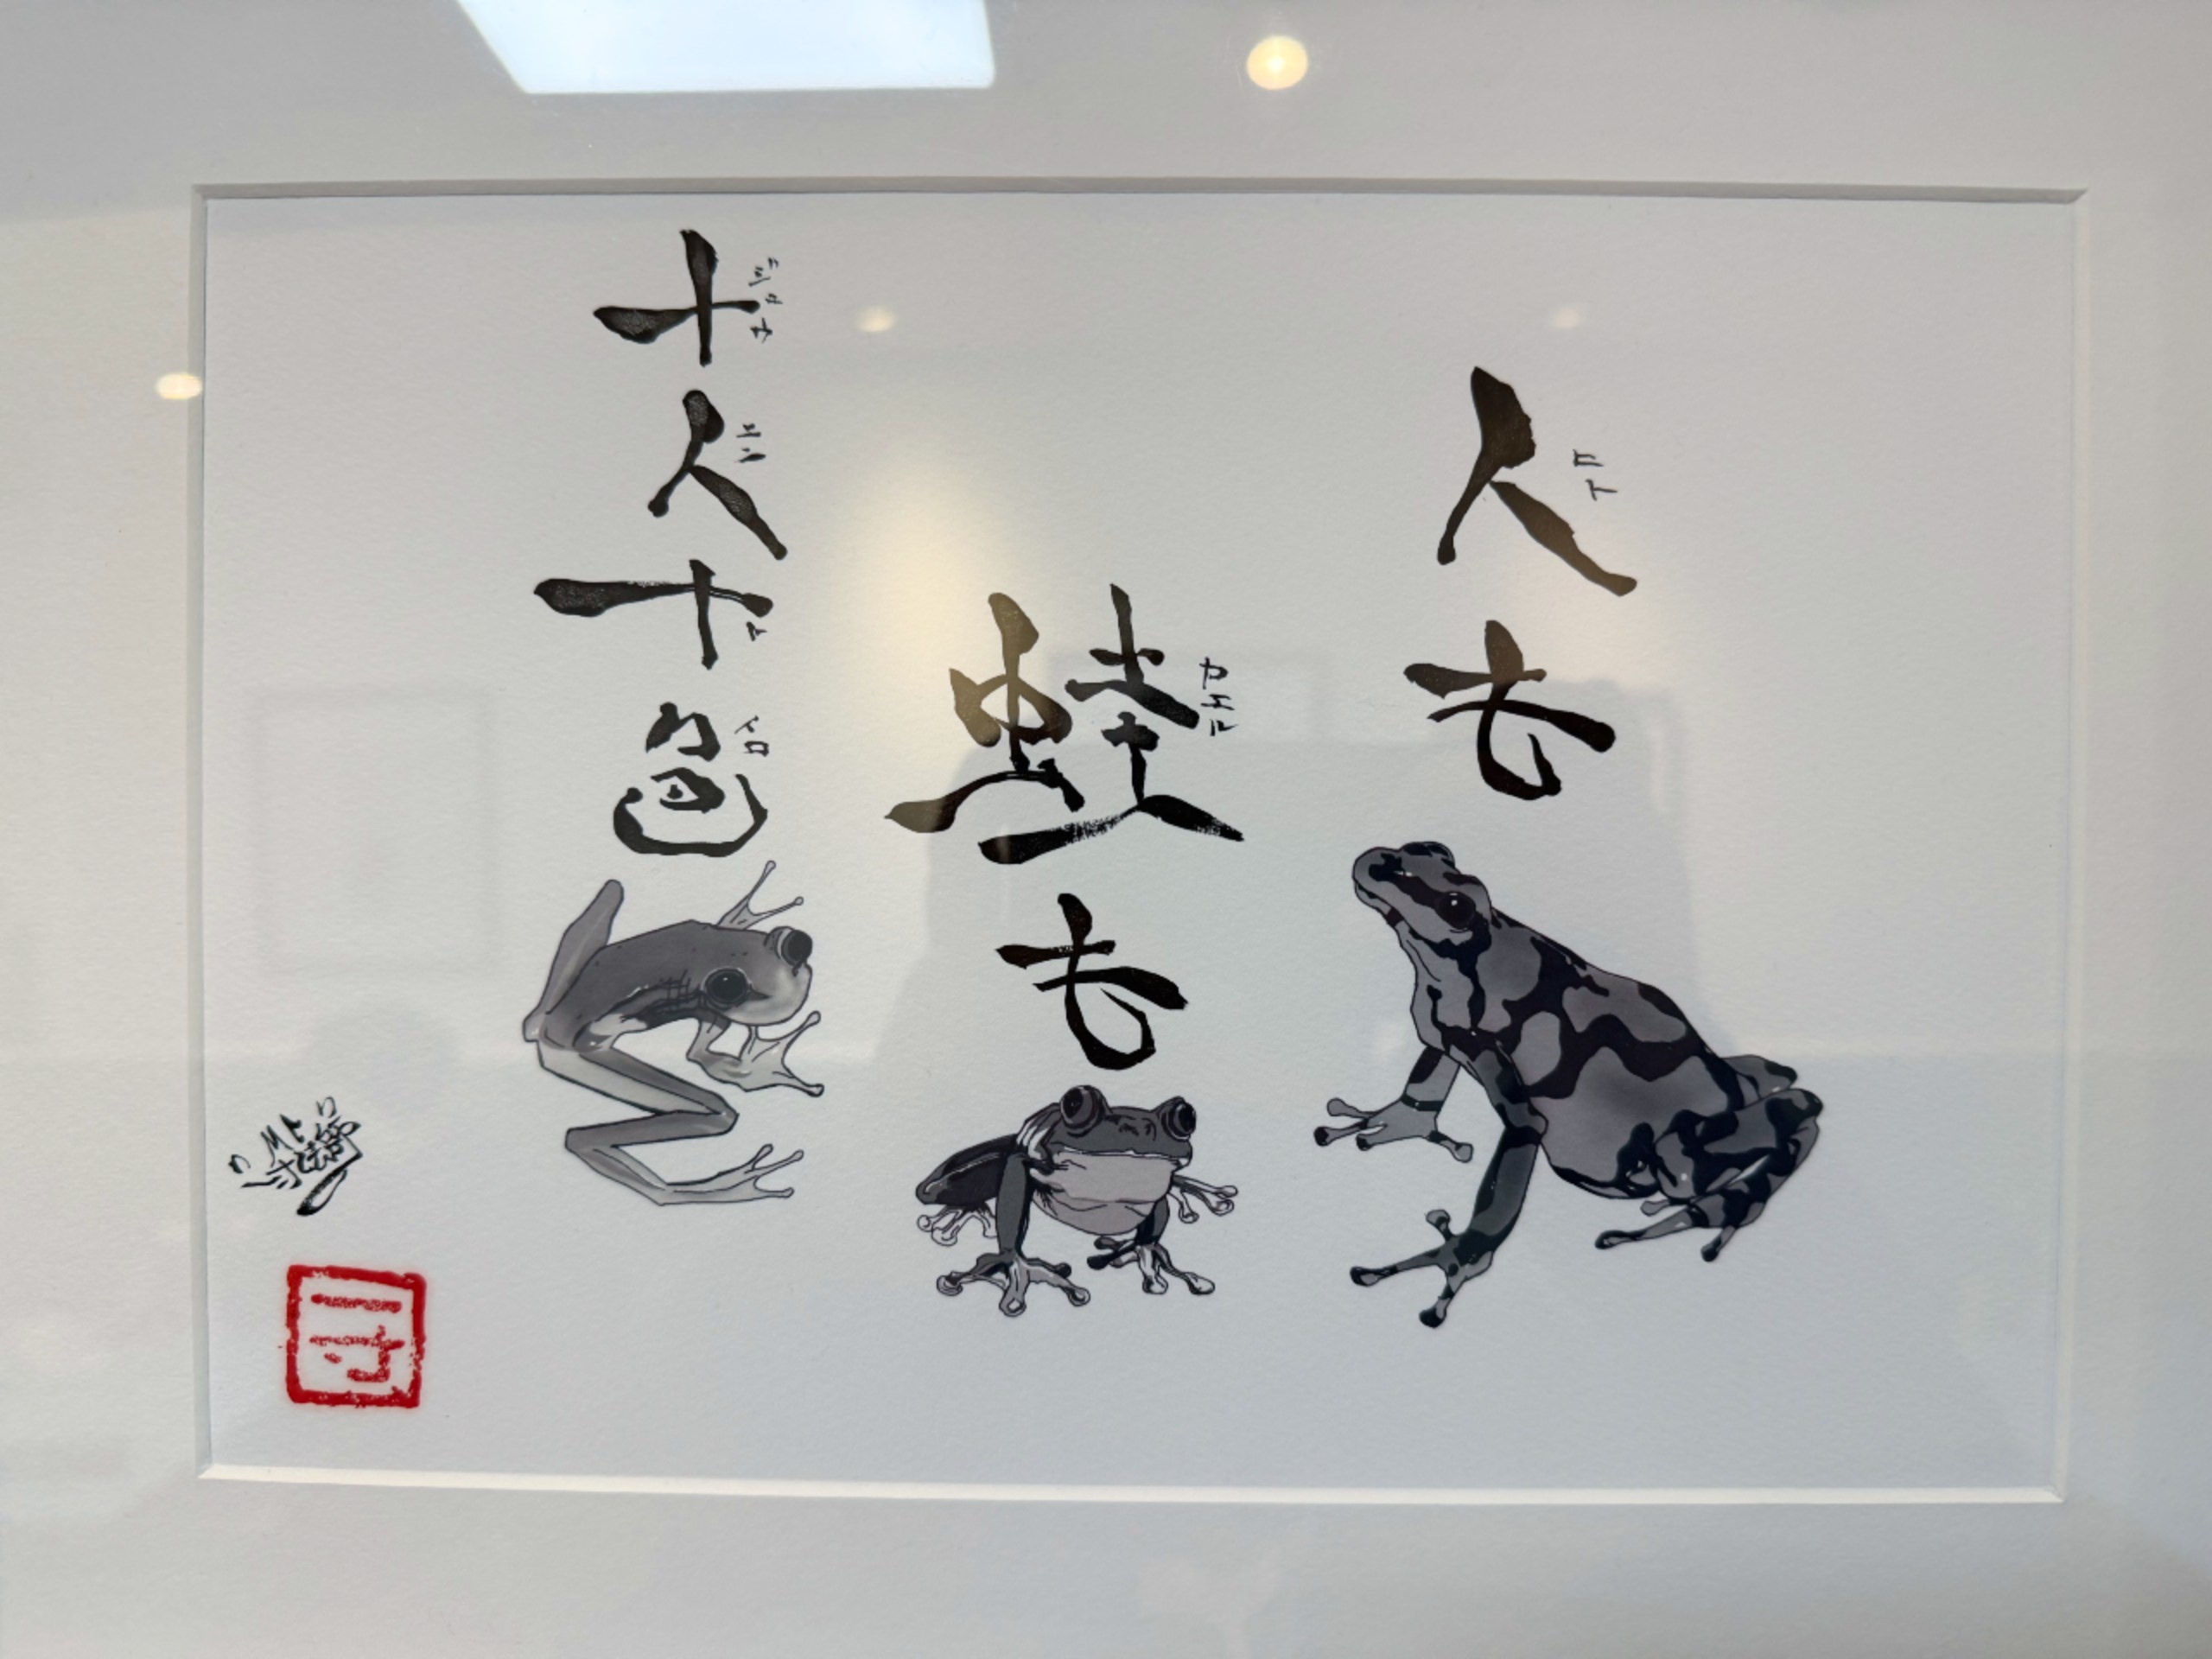 人も
ヒト
蛙も
カエル
十人十色
ジュウ
ニン
ト
イロ